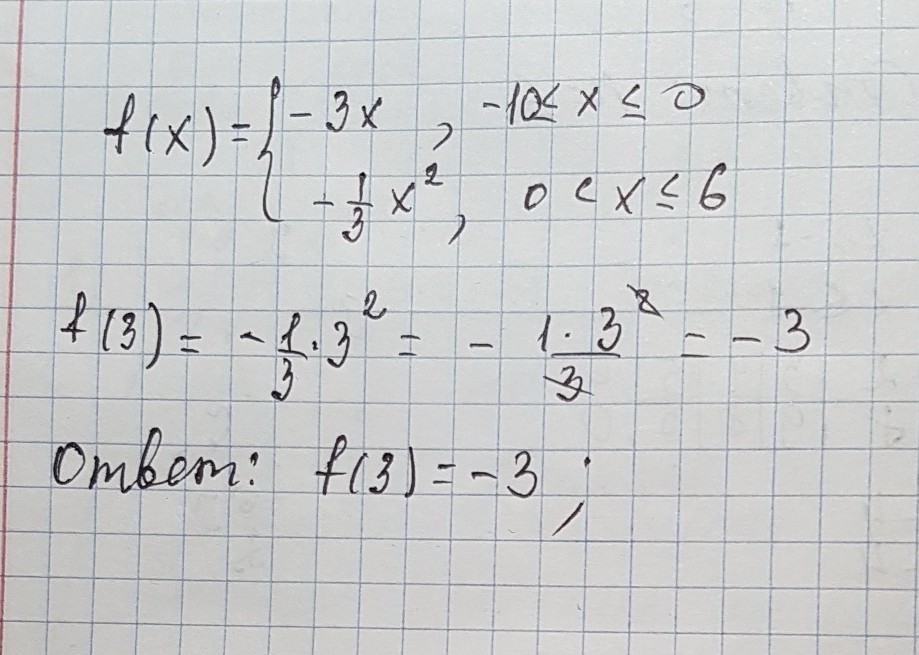 f(x) = { -3x , -10 ≤ x ≤ 0
-1/3 x², 0 < x ≤ 6
f(3) = -1/3 · 3² = - 1 · 3²/3 = -3
Ответ: f(3) = -3 ;